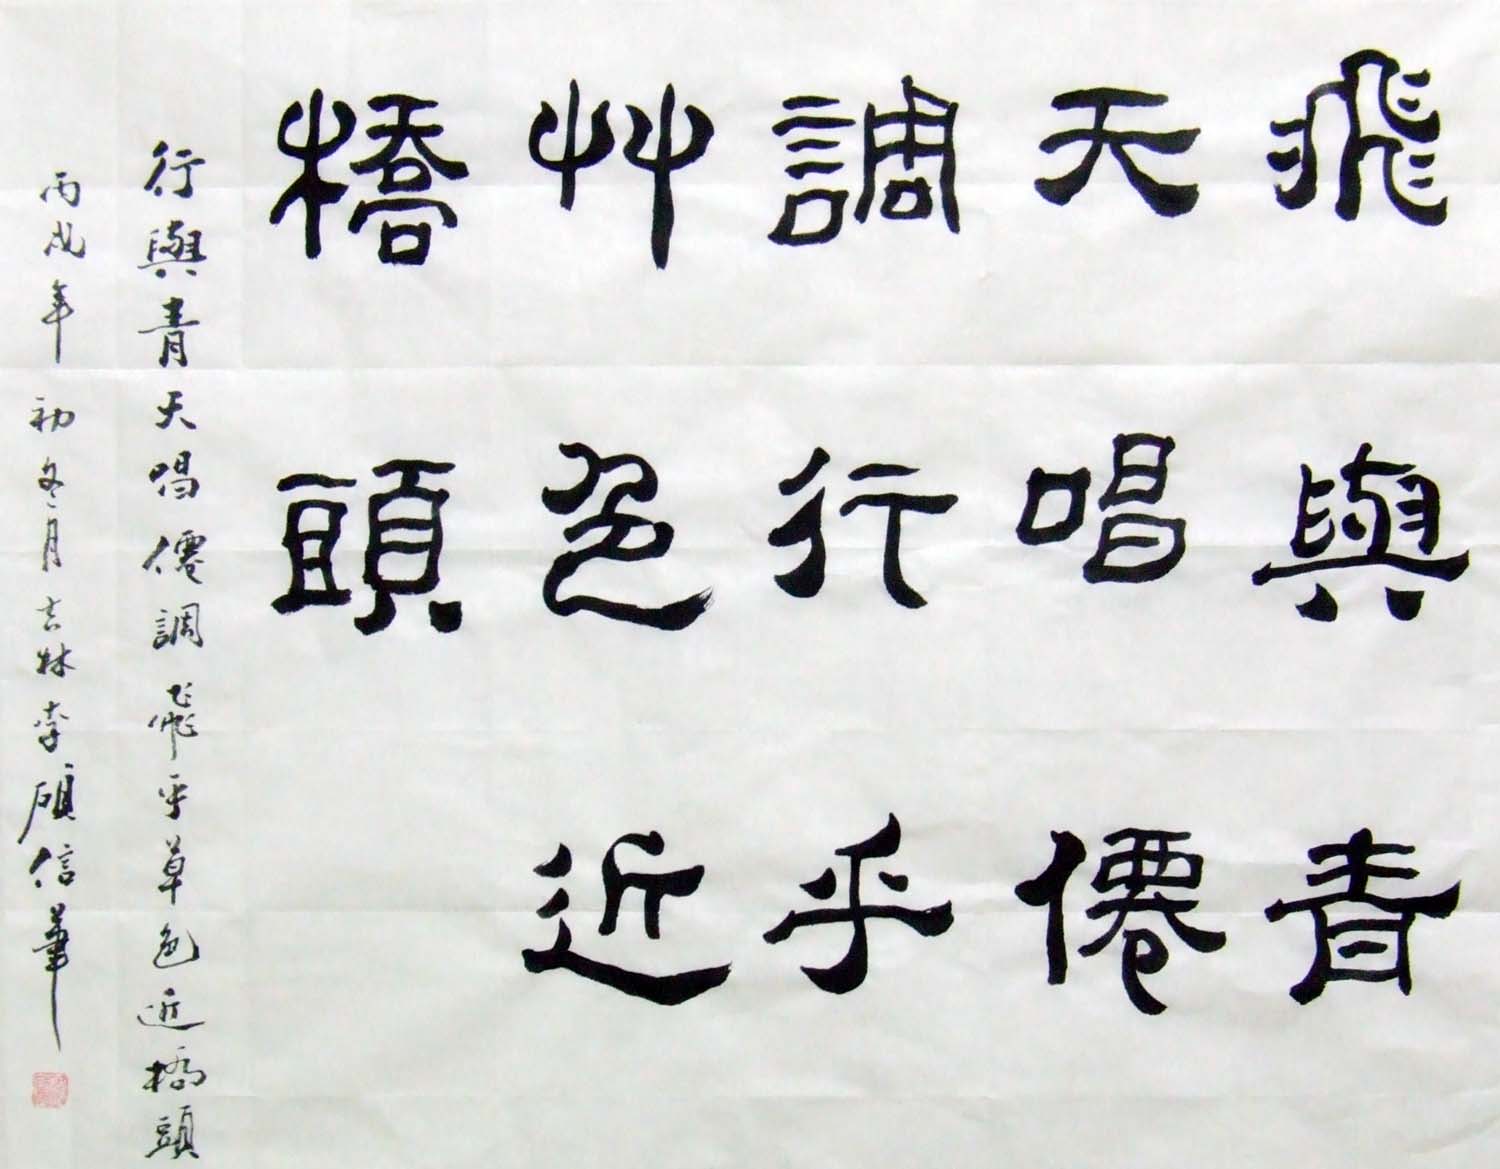 飛與青
天唱僊
調行乎
艸色近
橋頭
行與青天唱僊調飛乎草色近橋頭
丙戌年初冬月吉林李碩信筆